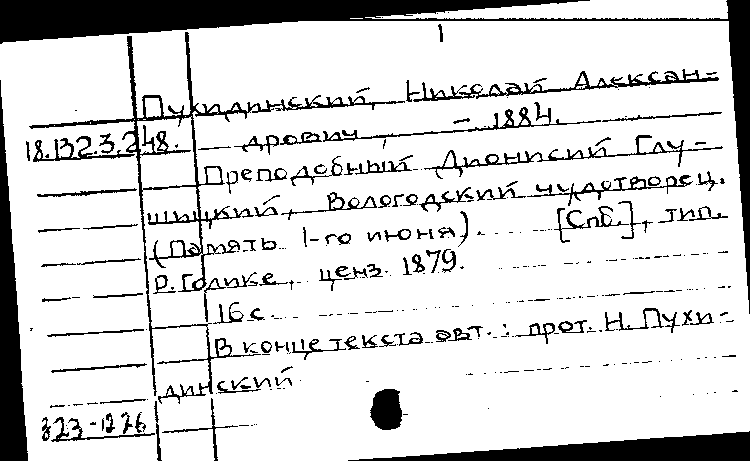 1
Пухидинский, Николай Алексан-
18.132.3.248. дрович, - 1884.
Преподобный Дионисий Глу-
шицкий, Вологодский чудотворец.
(Память 1-го июня). [Спб.], тип.
Р. Голике, ценз. 1879.
16 с.
В конце текста авт.: прот. Н. Пухи-
динский
323-1226